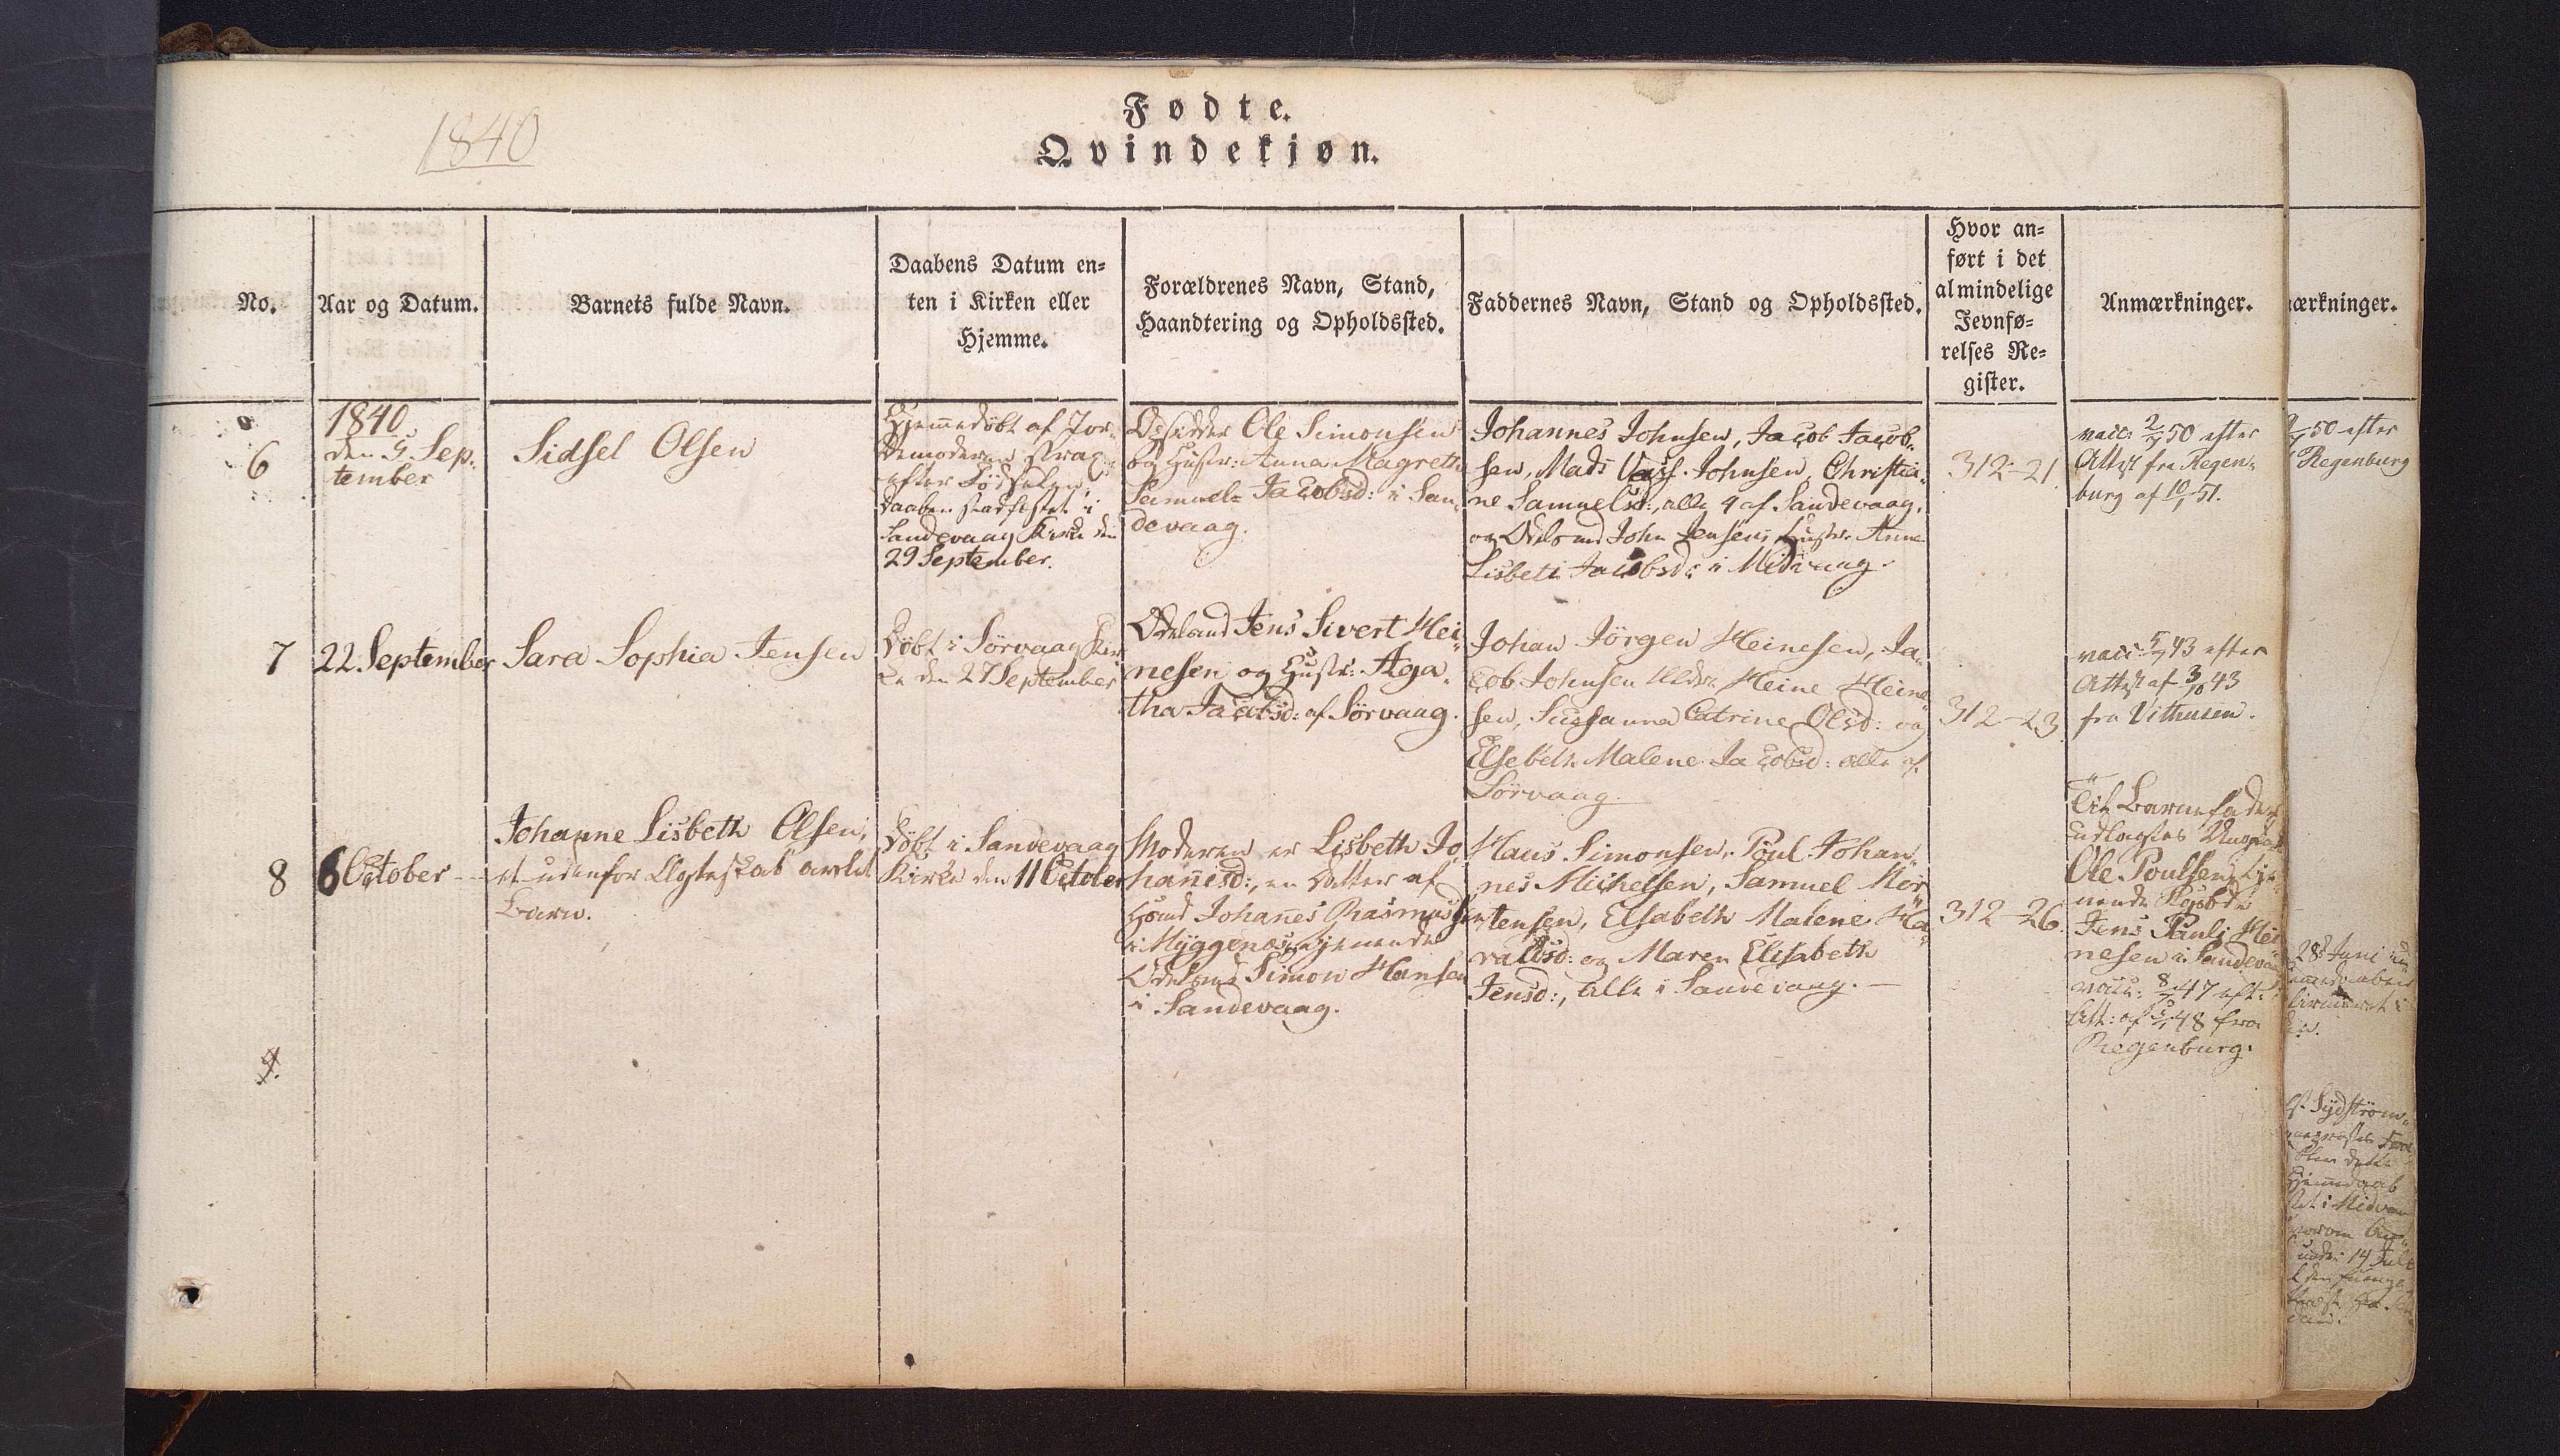 1840
Fødte.
Qvindekjøn.
No.
Aar og Datum.
Barnets fulde Navn.
Daabens Datum en-
ten i Kirken eller
Hjemme.
Forældrenes Navn, Stand,
Haandtering og Opholdssted.
Faddernes Navn, Stand og Opholdssted.
Hvor an-
ført i det
almindelige
Jevnfø-
relses Re-
gister.
Anmærkninger.
ærkninger.
6
1840
den 5 Sep-
tember
Sidsel Olsen
Hjemmedöbt af Jor-
demoderen strax
efter Födselen,
Daaben stadfæstet i
Sandevaag Kirke den
29 September.
Ole Simonsen
og Hustr: Anna Magreth
Samuel Jacobsd: i San-
devaag.
Johannes Johnsen, Jacob Jacob-
sen, Mads Johnsen, Christia-
ne Samuelsd:, alle 4 af Sandevaag,
og Odelsmd John Jensens Hustr. Anne
Lisbeth Jacobsd: i Midvaag.
312-21
vacc: 2/7 50 efter
Attest fra Regen-
burg af 10/1 51.
7
22. September
Sara Sophia Jensen
Döbt i Sörvaag Kir-
ke den 27 September
Odelsmd Jens Sivert Hei-
nesen og Hustr: Aga-
tha Jacobsd: af Sörvaag.
Johan Jörgen Heinesen, Ja-
cob Johnsen Heine Heine-
sen, Susanna Catrine Olsd: og
Elsebeth Malene Jacobsd: alle af
Sörvaag
312-23
vacc: 43 efter
Attest af 3/10 43
fra
8
6 October
Johanne Lisbeth Olsen,
et udenfor Ægteskab avlet
Barn.
Döbt i Sandevaag
Kirke den 11 October
Moderen er Lisbeth Jo-
hannisd:, en Datter af
Johannes Rasmussen
i Myggenæs, tjenende
Odelsmd Simon Hansen
i Sandevaag.
Hans Simonsen, Poul Johan-
nes Michelsen, Samuel Mor-
tensen, Elsabeth Malene Ha-
raldsd: og Maren Elisabeth
Jensd:, alle i Sandevaag.
312-26
Til Barnefader
udlagdes
Ole Poulsen, tje-
nende
Jens Pauli Hei-
nesen i Sandevaag
vacc: 8/7 47 eft:
Att: af 48 fra
Regenburg.
9.
50 efter
Regenburg
28 Juni
Sydström
Hjemmedaab
i Midvaag
14 Juli